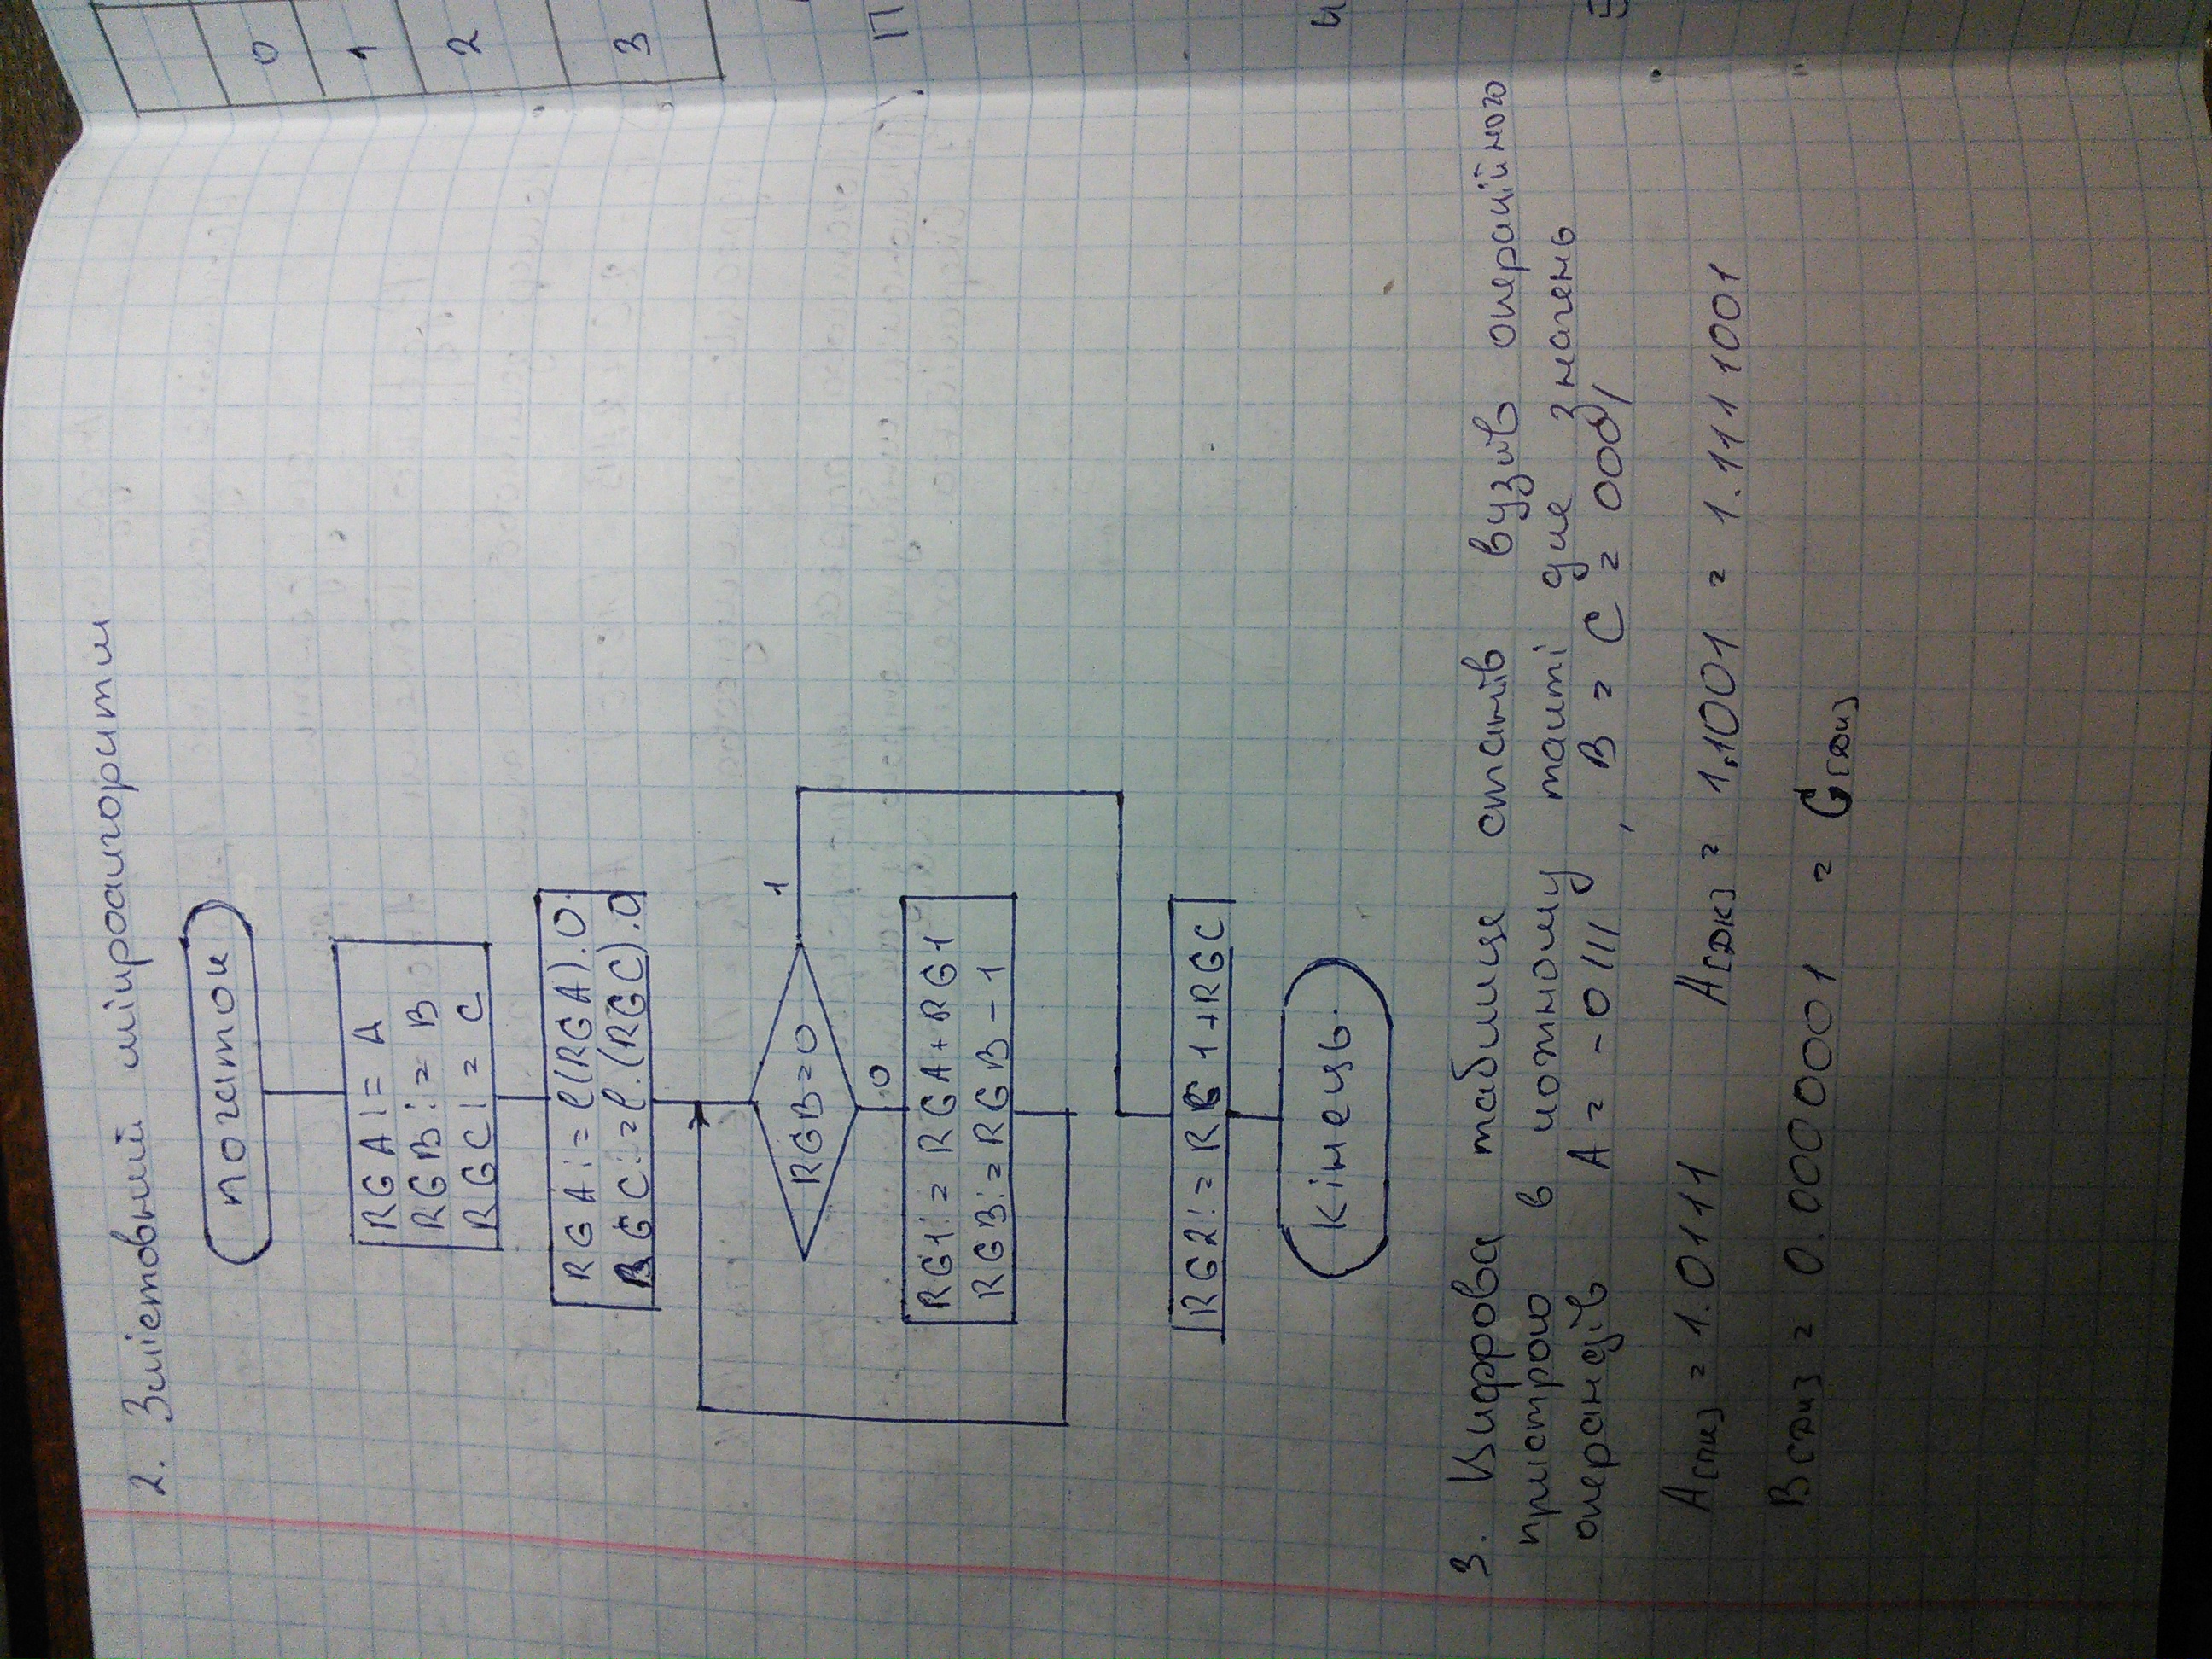 2. Змістовний мікроалгоритм
початок
RGA := A
RGB := B
RGC := C
RGA := l(RGA).0.
RGC := l.(RGC).0
RGB=0
1
0
RG1 := RGA+RG1
RGB := RGB-1
RG2 := RG1+RGC
Кінець.
3. Цифрова таблиця станів вузлів операційного
пристрою в кожному такті для значень
операндів A = -0111, B = C = 0001
A[пк] = 1.0111 A[дк] = 1,1001 = 1.1111001
B[дк] = 0.0000001 = C[дк]
0
1
2
3